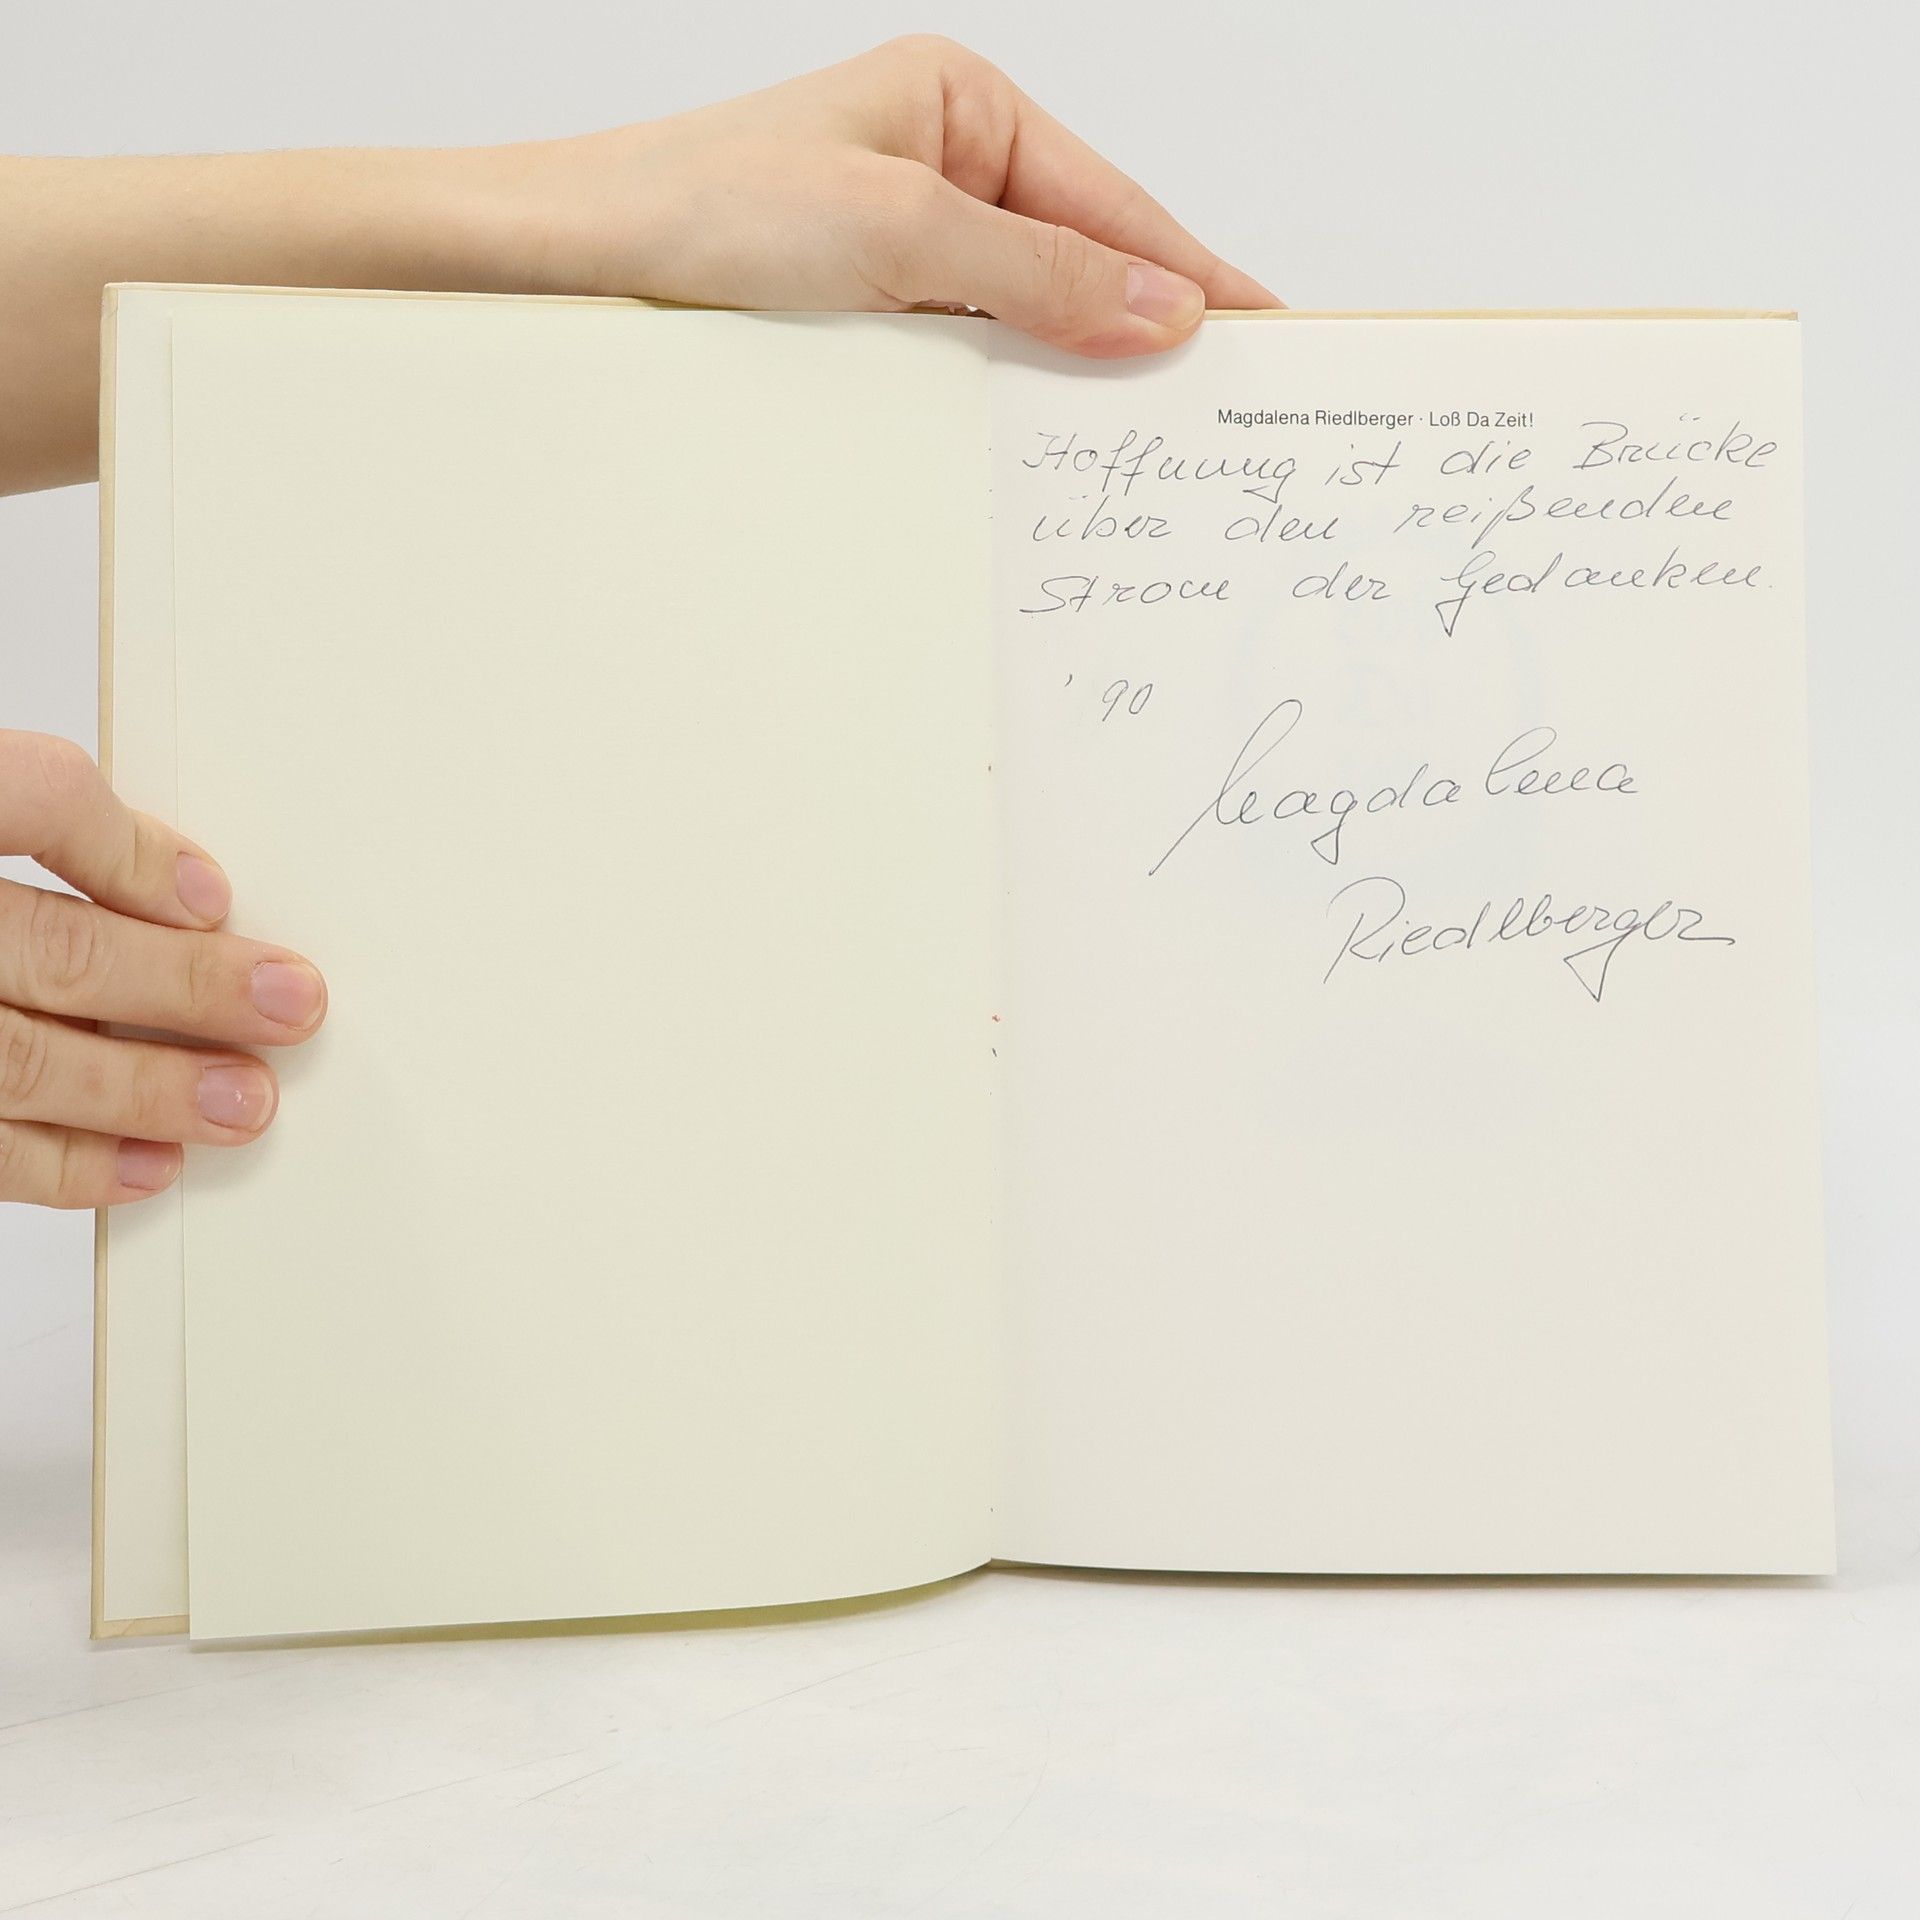 Magdalena Riedlberger · Loß Da Zeit!
Hoffnung ist die Brücke
über den reißenden
Strom der Gedanken.
' 90
Magdalena
Riedlberger